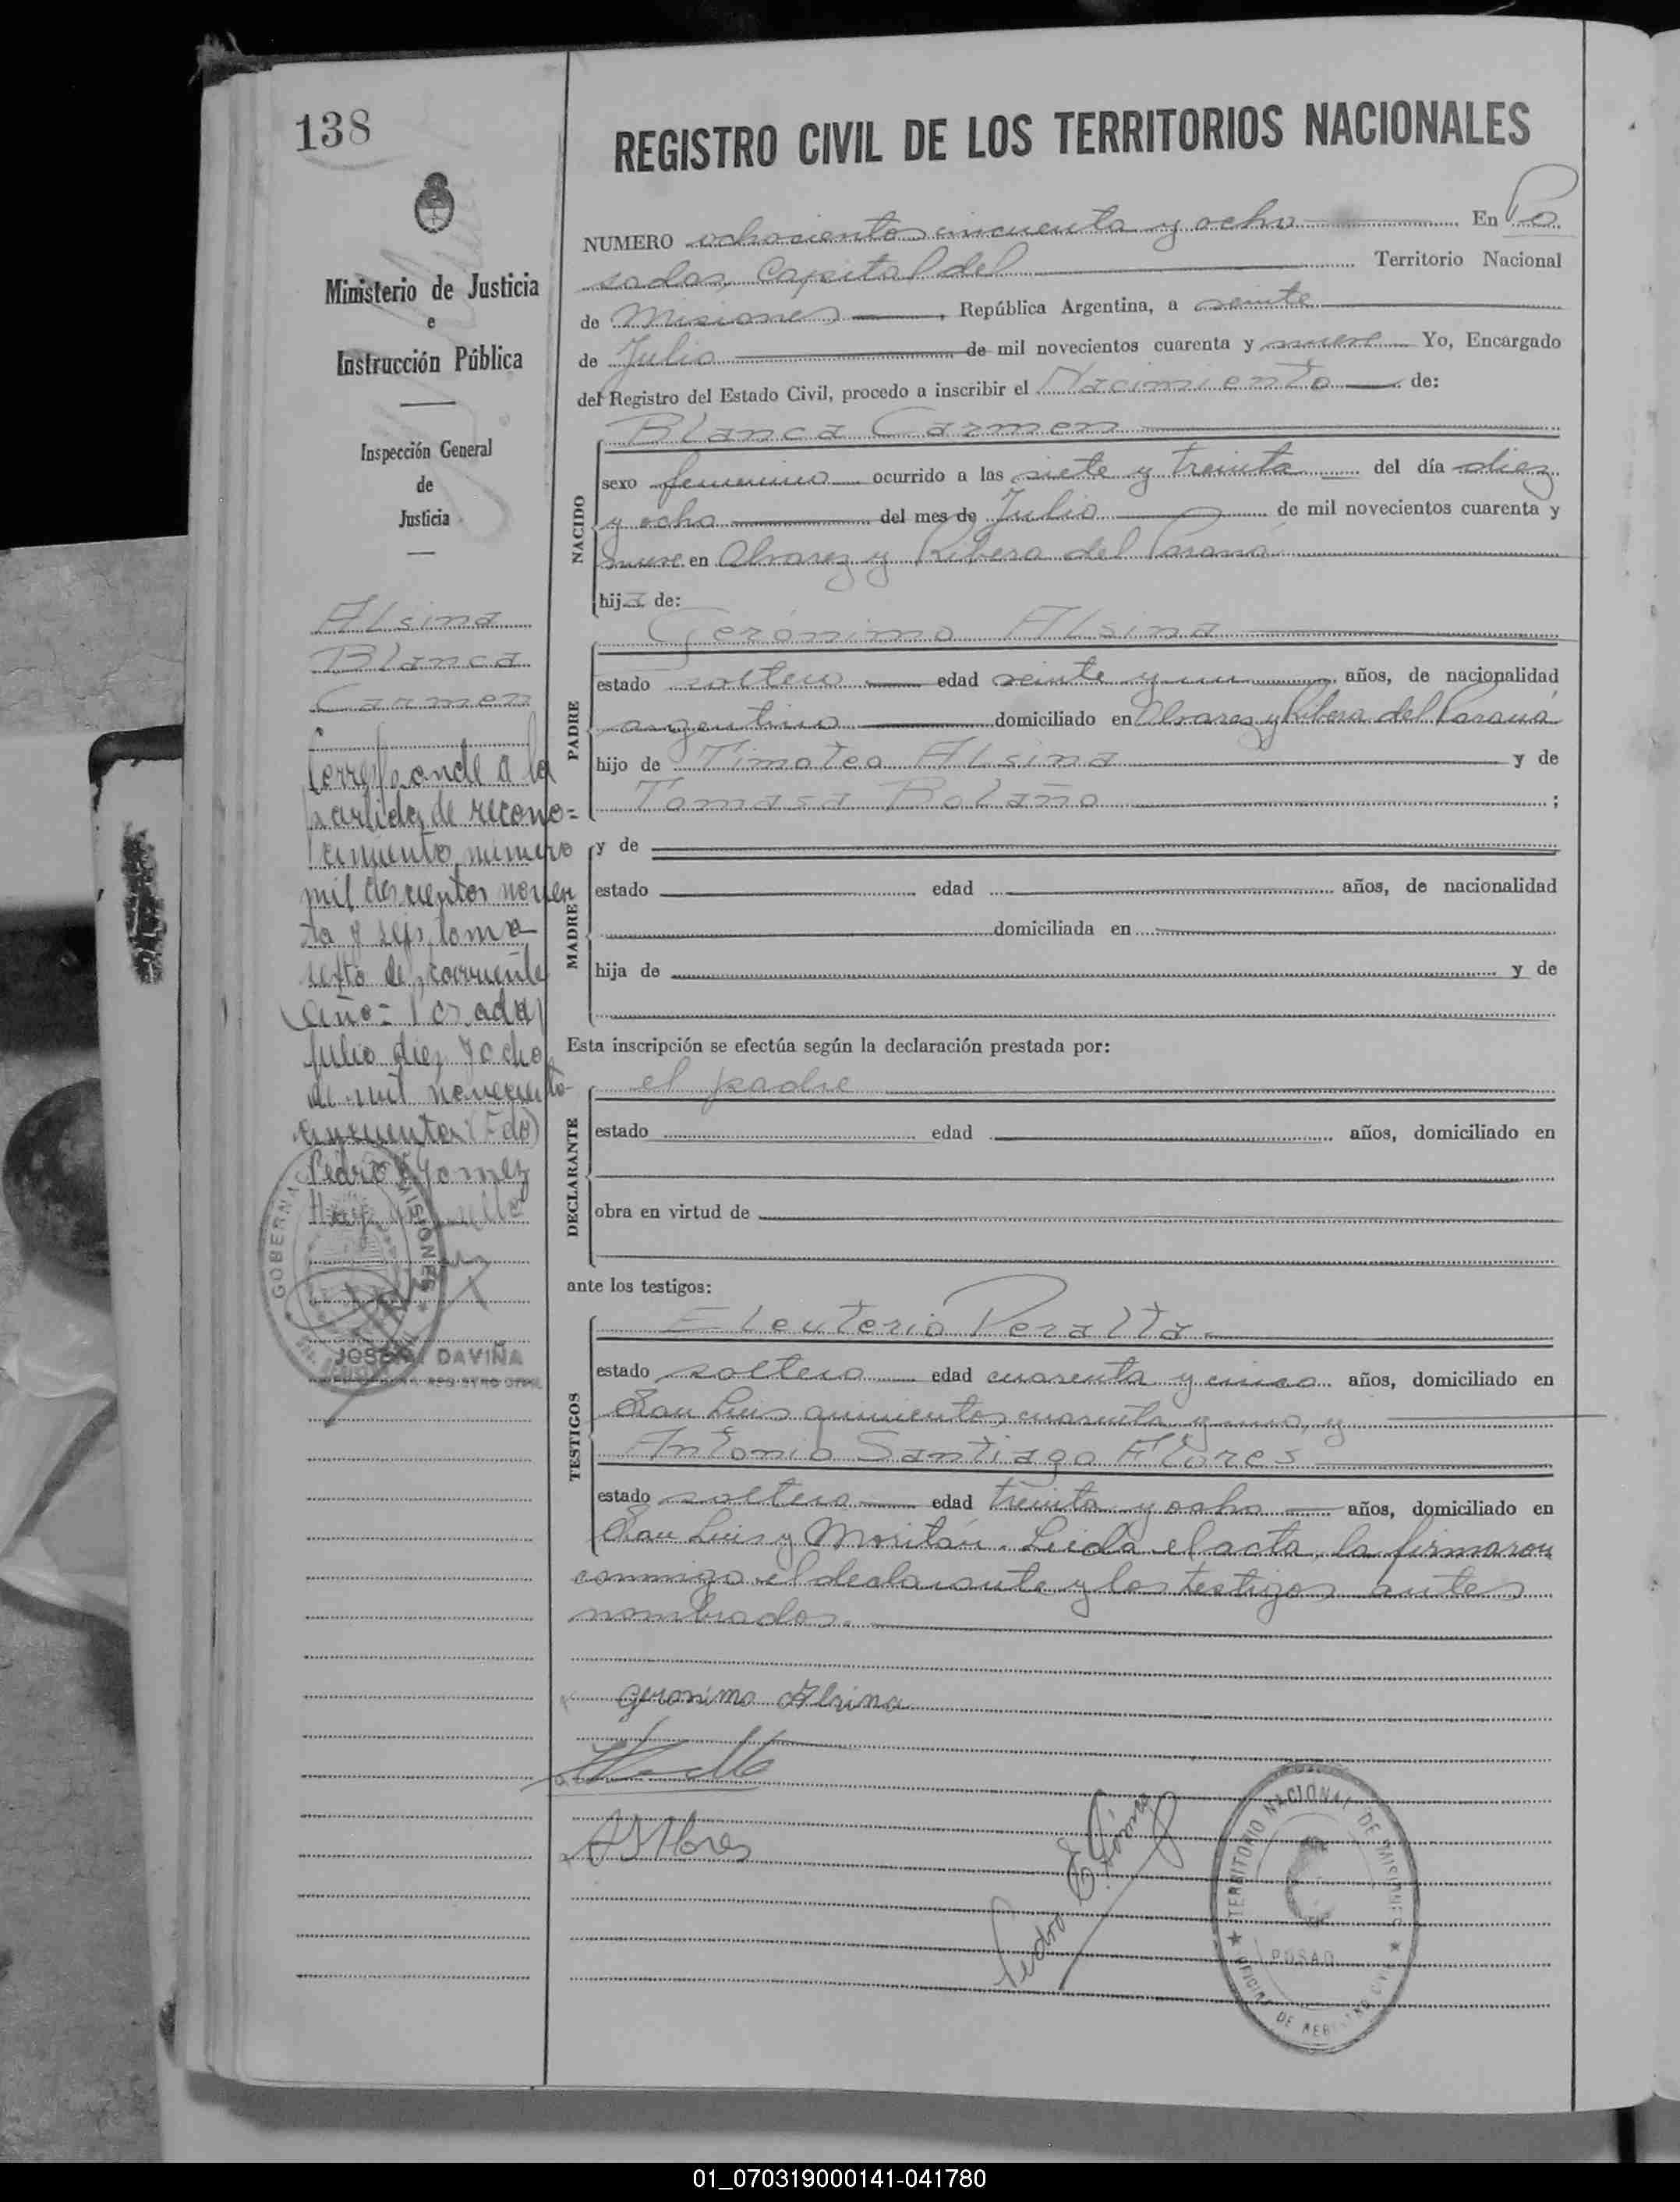 138
REGISTRO CIVIL DE LOS TERRITORIOS NACIONALES
Ministerio de Justicia
e
Instrucción Pública
Inspección General
de
Justicia
Alsina
Blanca
Carmen
Corresponde a la
partida de recono=
cimiento número
mil doscientos noven
ta y seis, tomo
sexto de corriente
año = Posadas
julio diez y ocho
de mil novecientos
cincuenta (Fdo)
Pedro E Gomez
Hay un sello
GOBERNA MISIONES
JOSE DAVIÑA
REGISTRO CIVIL
NUMERO ochocientos cincuenta y ocho En Po
sadas, Capital del Territorio Nacional
de Misiones, República Argentina, a veinte
de Julio de mil novecientos cuarenta y nueve Yo, Encargado
del Registro del Estado Civil, procedo a inscribir el Nacimiento de:
NACIDO
Blanca Carmen
sexo femenino ocurrido a las siete y treinta del día diez
y ocho del mes de Julio de mil novecientos cuarenta y
nueve en Alvarez y Ribera del Paraná
hija de:
PADRE
Gerónimo Alsina
estado soltero edad veinte y un años, de nacionalidad
argentino domiciliado en Alvarez y Ribera del Paraná
hijo de Timoteo Alsina y de
Tomasa Bolaño ;
MADRE
y de
estado edad años, de nacionalidad
domiciliada en
hija de y de
Esta inscripción se efectúa según la declaración prestada por:
DECLARANTE
el padre
estado edad años, domiciliado en
obra en virtud de
ante los testigos:
TESTIGOS
Eleuterio Peralta
estado soltero edad cuarenta y cinco años, domiciliado en
San Luis quinientos cuarenta y uno, y
Antonio Santiago Flores
estado soltero edad treinta y ocho años, domiciliado en
San Luis y Moritán. Leída el acta, la firmaron
conmigo el declarante y los testigos antes
nombrados.
Geronimo Alsina
A S Flores
Pedro E Gómez
TERRITORIO NACIONAL DE MISIONES
POSAD
OFICINA DE REGISTRO CIVIL
01_070319000141-041780